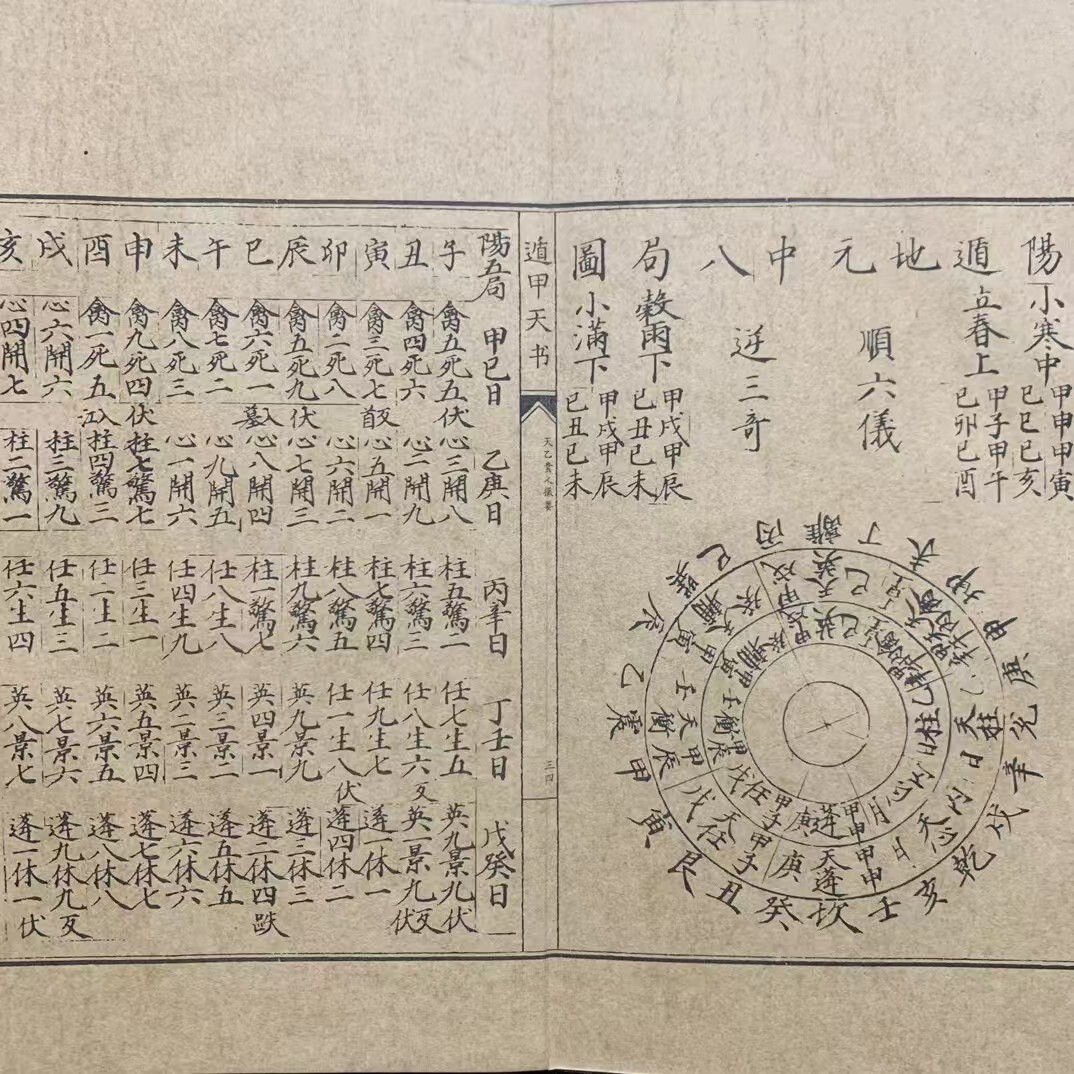 陽遁地元中八句圖
小寒中
甲申甲寅
巳巳巳亥
立春上
甲子甲午
巳卯巳酉
順六儀
逆三奇
穀雨下
甲戌甲辰
巳丑巳未
小滿下
甲戌甲辰
巳丑巳未
丁離丙巳巽辰乙震甲寅艮丑癸坎壬亥乾戌辛兌庚申坤未
天英
天柱
天心
甲申天蓬庚
甲子天任戊
甲辰天衝壬
遁甲天书
三四
陽五局 甲巳日 乙庚日 丙辛日 丁壬日 戊癸日
子 禽五死五伏 心三開八 柱五驚二 任七生五 英九景九伏
丑 禽四死六 心二開九 柱六驚三 任八生六反 英一景九反伏
寅 禽三死七反首 心五開一 柱七驚四 任九生七 蓬一休一
卯 禽二死八 心六開二 柱八驚五 任一生八伏 蓬四休二
辰 禽五死九伏 心七開三 柱九驚六 英九景九 蓬三休三
巳 禽六死一入墓 心八開四 柱一驚七 英四景一 蓬二休四跌
午 禽七死二 心九開五 任八生八 英三景二 蓬五休五
未 禽八死三 心一開六 任四生九 英二景三 蓬六休六
申 禽九死四伏 柱七驚七 任三生一 英五景四 蓬七休七
酉 禽一死五入江 柱四驚三 任一生二 英六景五 蓬八休八
戌 心六開六 柱三驚九 任五生三 英七景六 蓬九休九反
亥 心四開七 柱二驚一 任六生四 英八景七 蓬一休一伏